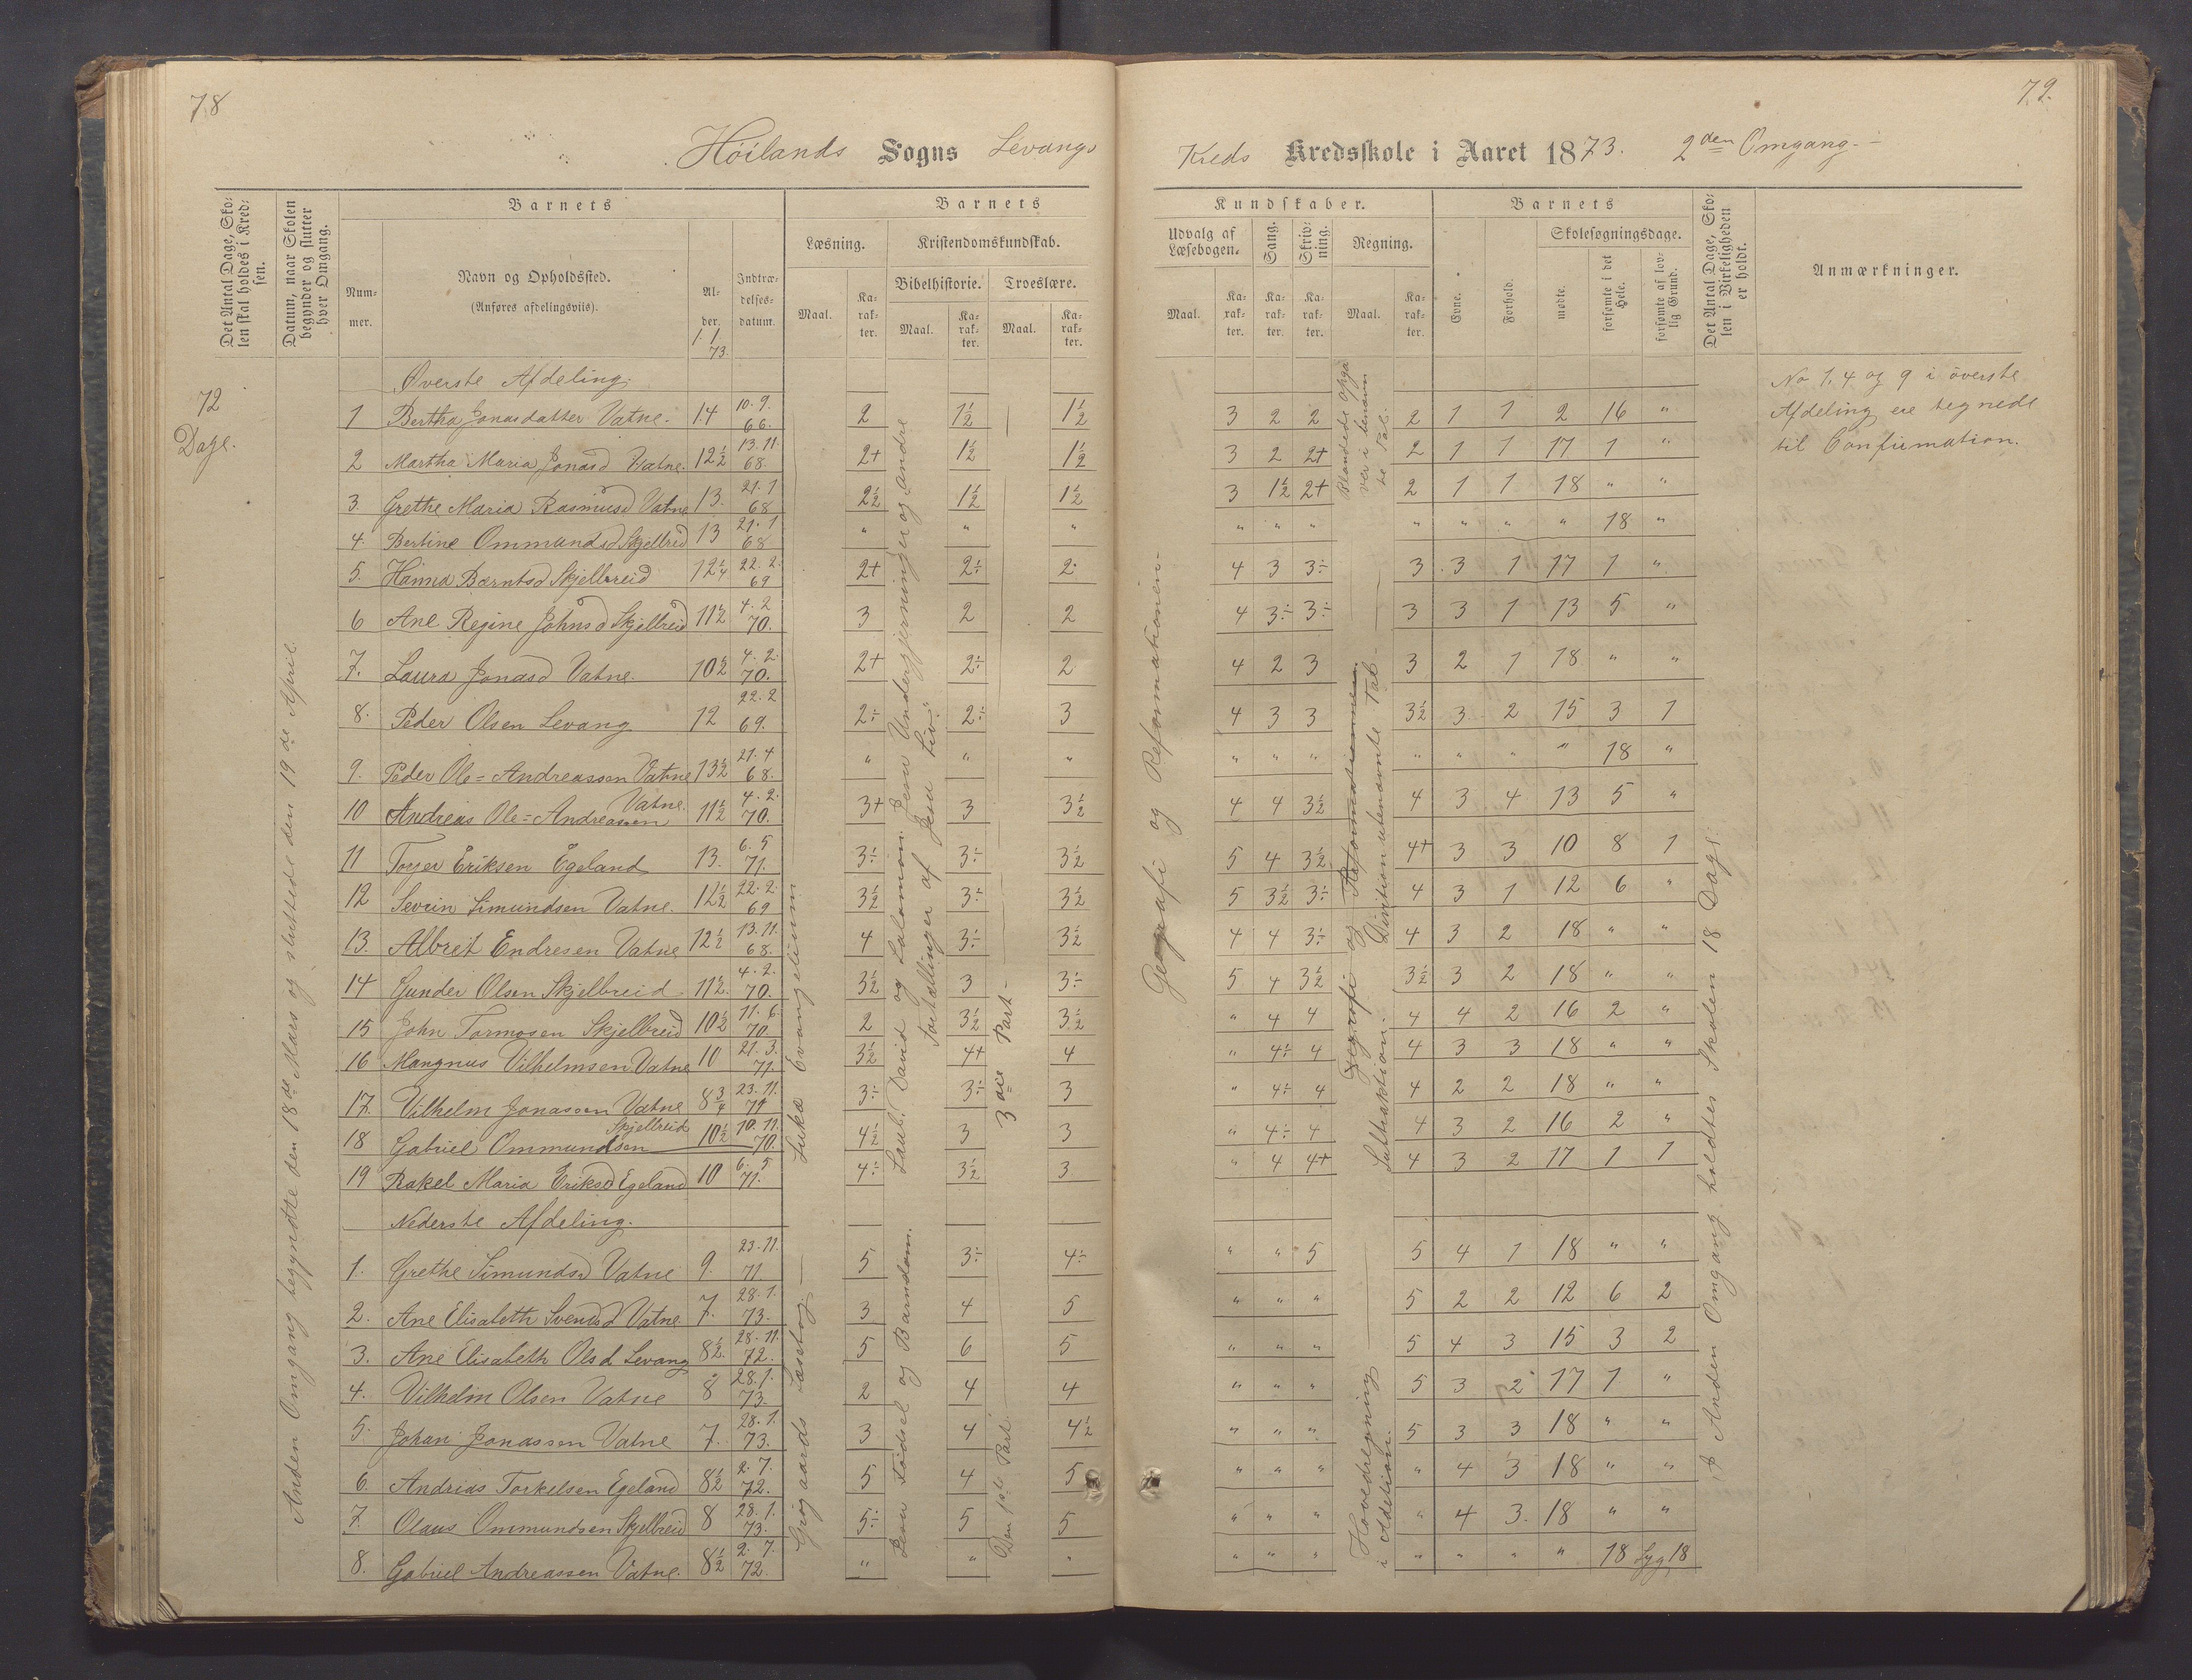 78
Höilands Sogns Levangs
Det Antal Dage, Sko-
len skal holdes i Kred-
sen.
Datum, naar Skolen
begynder og slutter
hver Omgang.
Barnets
Barnets
Num-
mer.
Navn og Opholdssted.
(Anføres afdelingsviis).
Al-
der.
1. 1.
73.
Indtræ-
delses-
datum.
Læsning.
Kristendomskundskab.
Bibelhistorie.
Troeslære.
Maal.
Ka-
rak-
ter.
Maal.
Ka-
rak-
ter.
Maal.
Ka-
rak-
ter.
72
Dage.
Anden Omgang begyndte den 18de Mars og sluttede den 19de April
Øverste Afdeling.
1 Bertha Jonasdatter Vatne. 14 10. 9. 66. 2 1½ 1½
2 Martha Maria Jonasd Vatne. 12½ 13. 11. 68. 2+ 1½ 1½
3. Grethe Maria Rasmusd Vatne 13. 21. 1 68 2½ 1½ 1½
4. Bertine Ommundsd Skjelbred 13 21. 1 68 " " "
5. Hanna Berntsd Skjelbreid 12¼ 22. 2. 69 2+ 2÷ 2
6 Ane Regine Johnsd Skjelbreid 11½ 4. 2 70. 3 2 2
7. Laura Jonasd Vatne. 10½ 4. 2. 70. 2+ 2÷ 2
8. Peder Olsen Levang 12 22. 2 69. 2÷ 2÷ 3
9. Peder Ole=Andreassen Vatne 13½ 21. 4 68. " " "
10 Andreas Ole=Andreassen Vatne. 11½ 4. 2. 70. 3+ 3 3½
11 Torger Eriksen Egeland 13. 6. 5 71. 3÷ 3÷ 3½
12 Sevrin Simundsen Vatne. 12½ 22. 2. 69 3½ 3÷ 3½
13. Albreit Endresen Vatne 12½ 13. 11. 68. 4 3÷ 3½
14 Gunder Olsen Skjelbreid 11½ 4. 2. 70. 3½ 3 3÷
15 John Tormosen Skjelbreid 10½ 11. 6. 70. 2 3½ 3½
16 Mangnus Vilhelmsen Vatne 10 21. 3. 71. 3½ 4+ 4
17. Vilhelm Jonassen Vatne 8¾ 23. 11. 71 3÷ 3÷ 3
18 Gabriel Ommundsen Skjelbreid 10½ 10. 11. 70. 4½ 3 3
19 Rakel Maria Eriksd Egeland 10 6. 5 71. 4÷ 3½ 3
Nederste Afdeling.
1. Grethe Simundsd Vatne 9. 23. 11. 71 5 3÷ 4÷
2. Ane Elisabeth Svendsd Vatne 7. 28. 1. 73. 3 4 5
3. Ane Elisabeth Olsd Levang 8½. 28. 11. 72. 5 6 5
4. Vilhelm Olsen Vatne 8 28. 1. 73. 2 4 4
5. Johan Jonassen Vatne 7. 28. 1. 73. 3 4 4½
6. Andrias Torkelsen Egeland 8½ 2. 7. 72. 5 4 5
7. Olaus Ommundsen Skjelbreid 8 28. 1. 73. 5÷ 5 5
8. Gabriel Andreassen Vatne. 8½ 2. 7. 72. " " "
Lukæ Evangelium
Grøgaards Læsebog
Saul. David og Salomon. Jesu Undergjerninger og andre
Fortællinger af Jesu Liv.
Jesu Födsel og Barndom.
3die Part
Den 1ste Part
79.
Kreds Kredsskole i Aaret 1873. 2den Omgang.
Kundskaber.
Barnets
Udvalg af
Læsebogen.
Sang.
Skriv-
ning.
Regning.
Evne.
Forhold.
Skolesøgningsdage.
mødte.
forsømte i det
Hele.
forsømte af lov-
lig Grund.
Det Antal Dage, Sko-
len i Virkeligheden
er holdt.
Anmærkninger.
Maal.
Ka-
rak-
ter.
Ka-
rak-
ter.
Ka-
rak-
ter.
Maal.
Ka-
rak-
ter.
No 1, 4 og 9 i överste
Afdeling ere tegnede
til Confirmation.
3 2 2 2 1 1 2 16 "
3 2 2+ 2 1 1 17 1 "
3 1½ 2+ 2 1 1 18 " "
" " " " " " " 18 "
4 3 3÷ 3 3 1 17 1 "
4 3÷ 3÷ 3 3 1 13 5 "
4 2 3 3 2 1 18 " "
4 3 3 3½ 3 2 15 3 1
" " " " " " " 18 "
4 4 3½ 4 3 4 13 5 "
5 4 3½ 4+ 3 3 10 8 1
5 3½ 3÷ 4 3 1 12 6 "
4 4 3÷ 4 3 2 18 " "
5 4 3½ 3½ 3 2 18 " "
" 4 4 4 4 2 16 2 "
" 4÷ 4 4 3 3 18 " "
" 4÷ 4 4 2 2 18 " "
" 4÷ 4 4 3 2 16 2 "
" 4 4+ 4 3 2 17 1 1
" " 5 5 4 1 18 " "
" " " 5 2 2 12 6 2
" " " 5 4 3 15 3 2
" " " 5 3 2 17 1 "
" " " 5 3 3 18 " "
" " " " 4 3 18 " "
" " " " 4 3. 18 " "
" " " " " " " 18 Syg 18
Geografi og Reformationen.
Blandede Opga
ver i benævn
te Tal.
Geografi og Reformationen
Divition ubenævnte Tal
Subtraktion.
Hovedregning
i Adition.
I Anden Omgang holdtes Skolen 18 Dage.